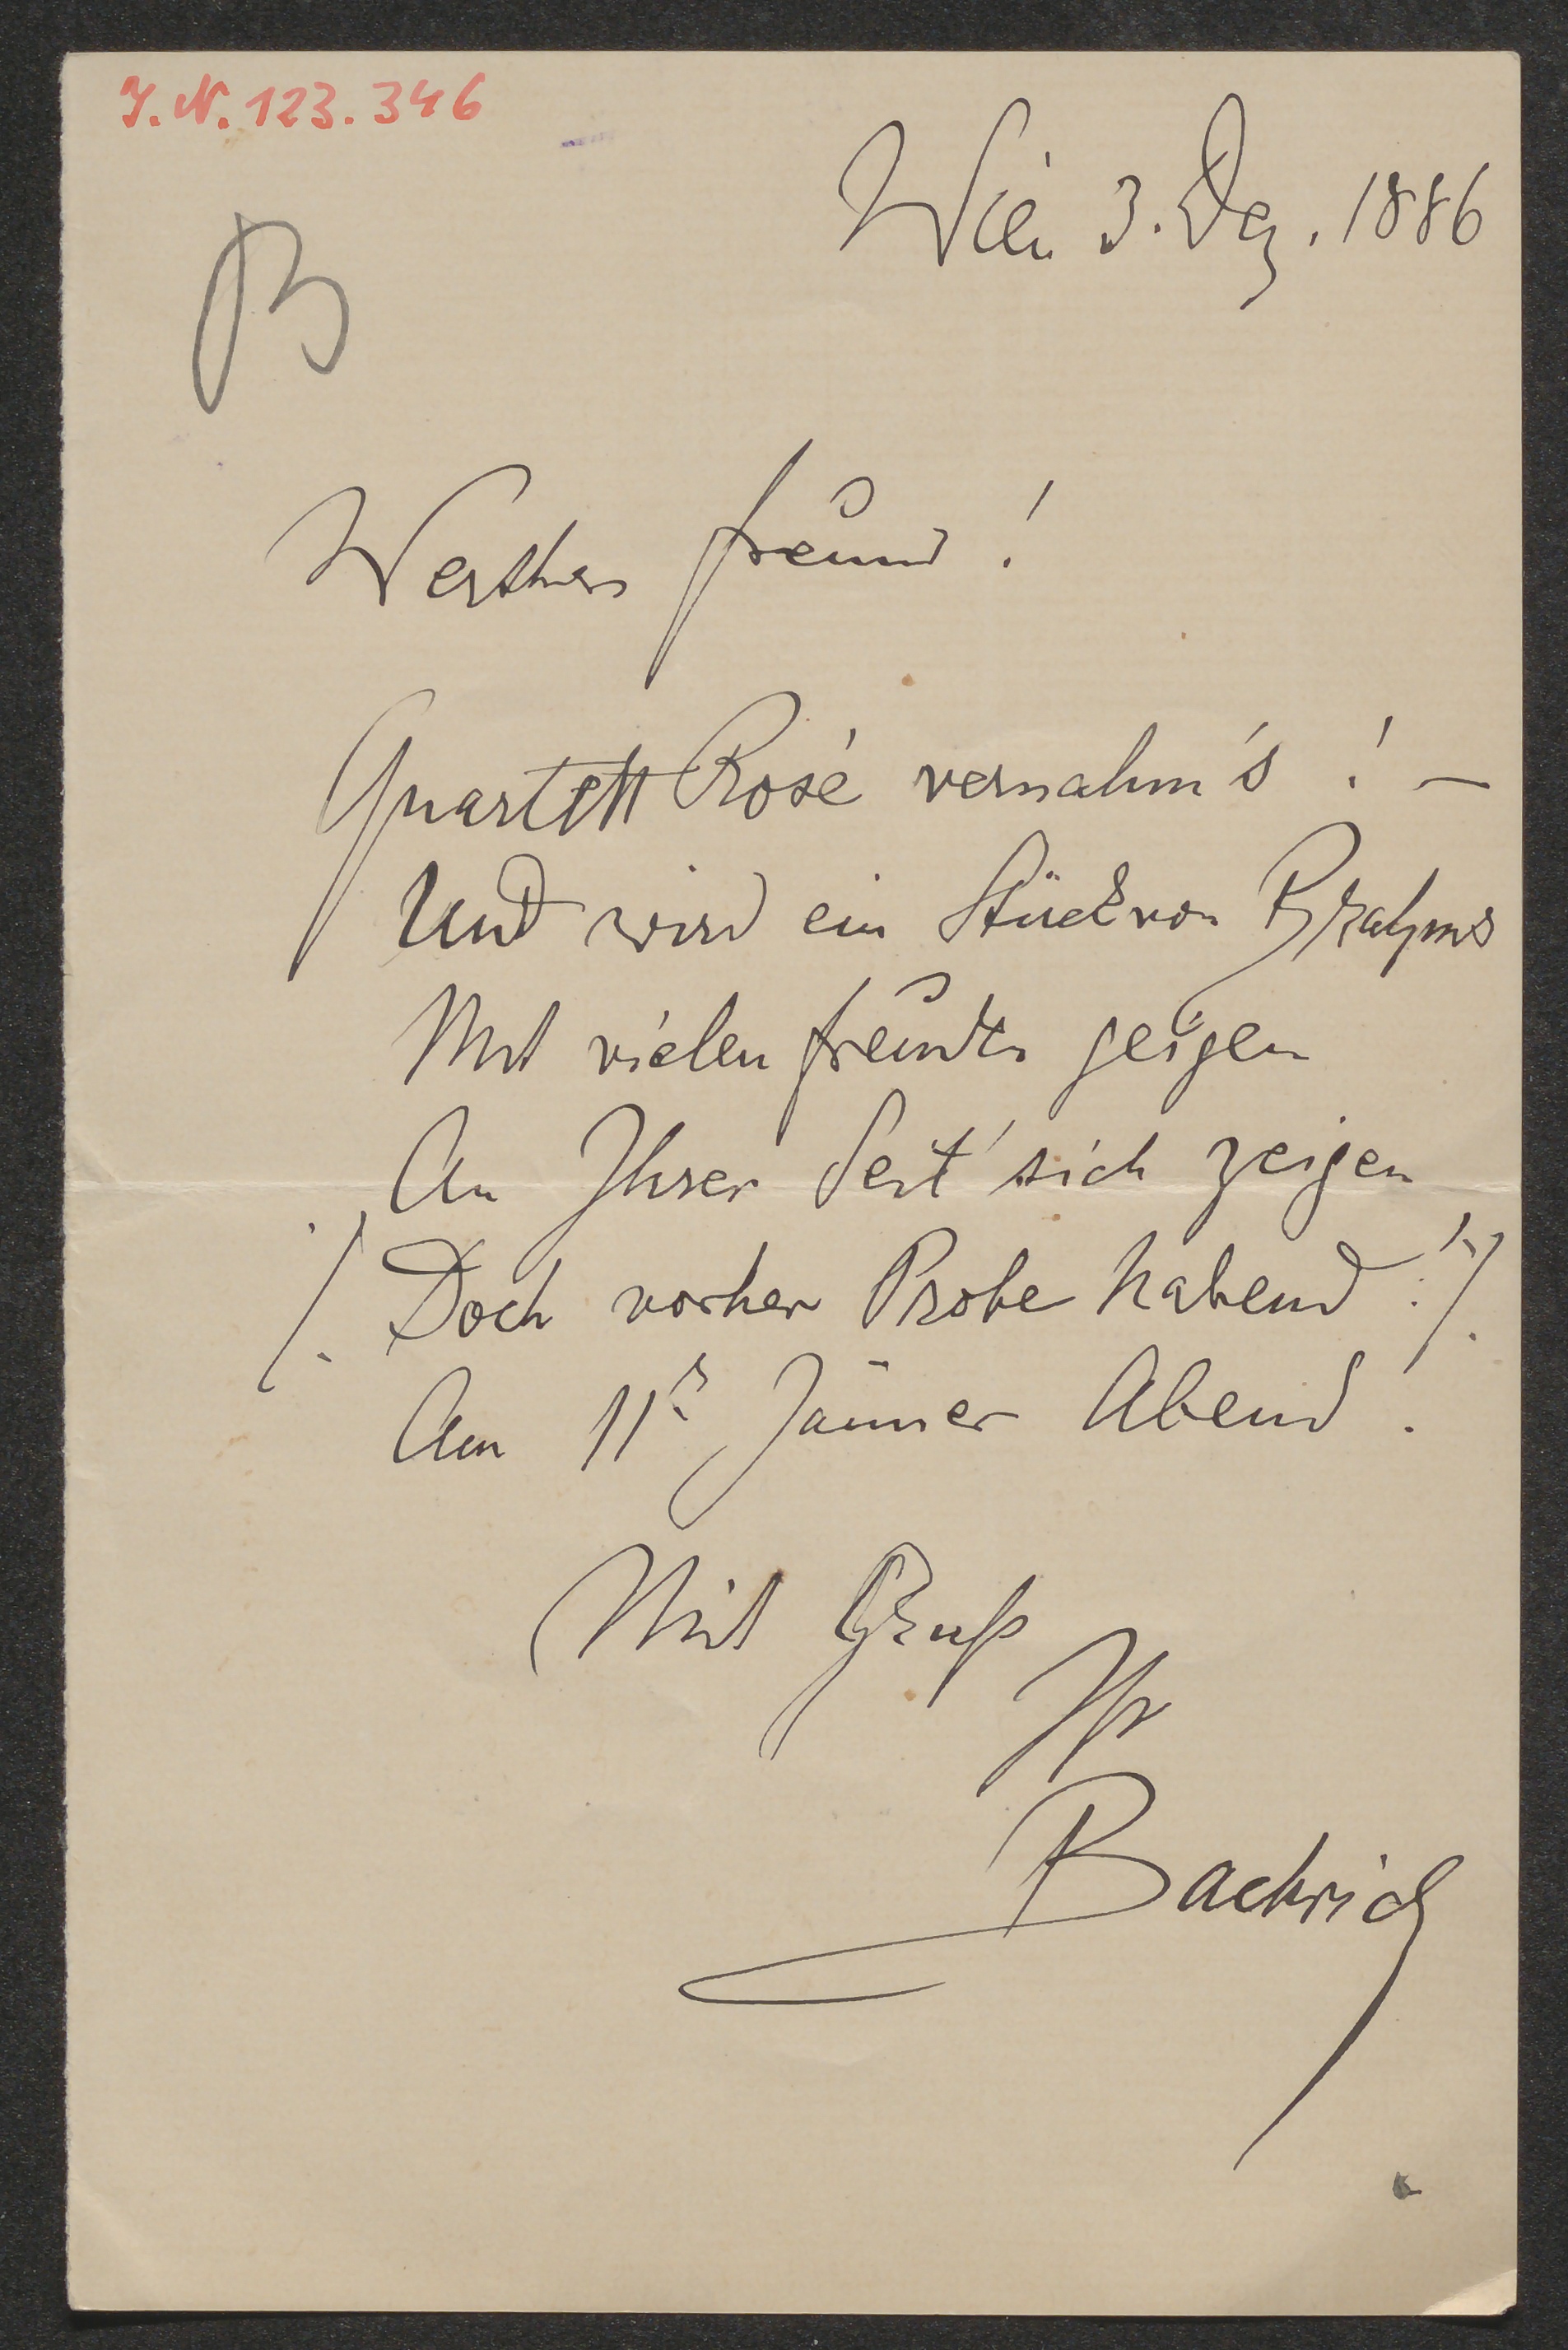 J.N. 123.346
Wien 3. Dez. 1886
B
Werther Freund!
Quartett Rosé vernahm's! –
Und wird ein Stück von Brahms
Mit vielen Freuden geigen
An Ihrer Seit' sich zeigen
/. Doch vorher Probe habend! ./
Am 11. Jänner Abend.
Mit Gruß
Ihr
Bachrich